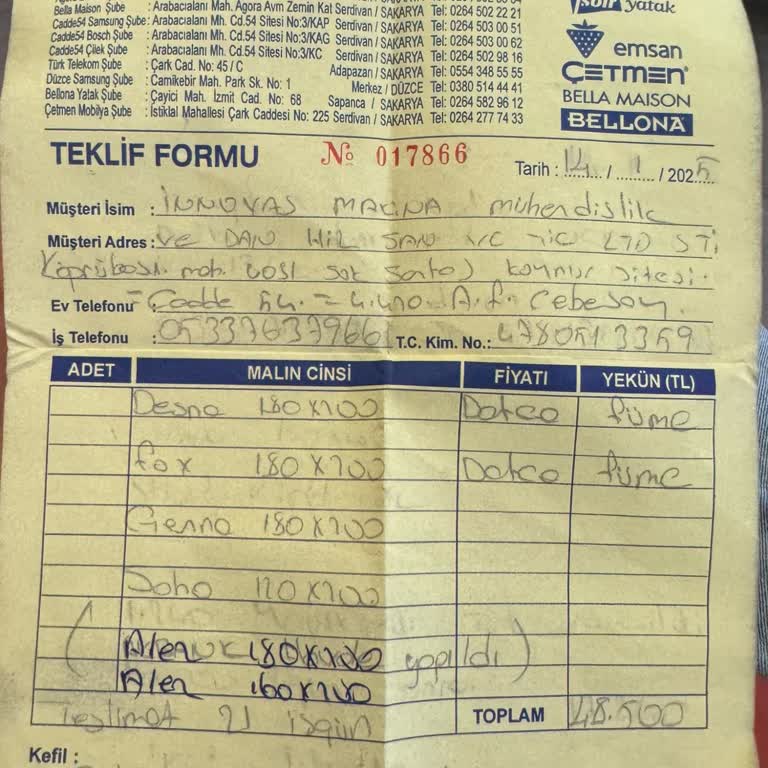 Bella Maison Şube : Arabacıalanı Mah. Agora Avm Zemin Kat Serdivan / SAKARYA Tel: 0264 502 22 21
Cadde54 Samsung Şube : Arabacıalanı Mh. Cd.54 Sitesi No:3/KAP Serdivan / SAKARYA Tel: 0264 503 00 51
Cadde54 Bosch Şube : Arabacıalanı Mh. Cd.54 Sitesi No:3/KAG Serdivan / SAKARYA Tel: 0264 503 00 62
Cadde54 Çilek Şube : Arabacıalanı Mh. Cd.54 Sitesi No:3/KC Serdivan / SAKARYA Tel: 0264 502 98 16
Türk Telekom Şube : Çark Cad. No: 45 / C Adapazarı / SAKARYA Tel: 0554 348 55 55
Düzce Samsung Şube : Camikebir Mah. Park Sk. No: 1 Merkez / DÜZCE Tel: 0380 514 44 41
Bellona Yatak Şube : Çayiçi Mah. İzmit Cad. No: 68 Sapanca / SAKARYA Tel: 0264 582 96 12
Çetmen Mobilya Şube : İstiklal Mahallesi Çark Caddesi No: 225 Serdivan / SAKARYA Tel: 0264 277 74 33
yatak
emsan
ÇETMEN
BELLA MAISON
BELLONA
TEKLİF FORMU
No 017866
Tarih : 14 / 1 / 2025
Müşteri İsim : İNNOVAS MAKİNA mühendislik
Müşteri Adres : VE DAN HİZ SAN VE TİC LTD ŞTİ
Köprübaşı mah. sok sitesi.
Ev Telefonu Cadde A.f. Cebesoy.
İş Telefonu : 05337637966 T.C. Kim. No.: 4780513359
ADET MALIN CİNSİ FİYATI YEKÜN (TL)
Desna 180x200 Datca füme
fox 180x200 Datca füme
Genna 180x200
Soho 120x200
(Alez 180x200 yapıldı)
Alez 160x200
Teslimat 21 işgün TOPLAM 48.500
Kefil :